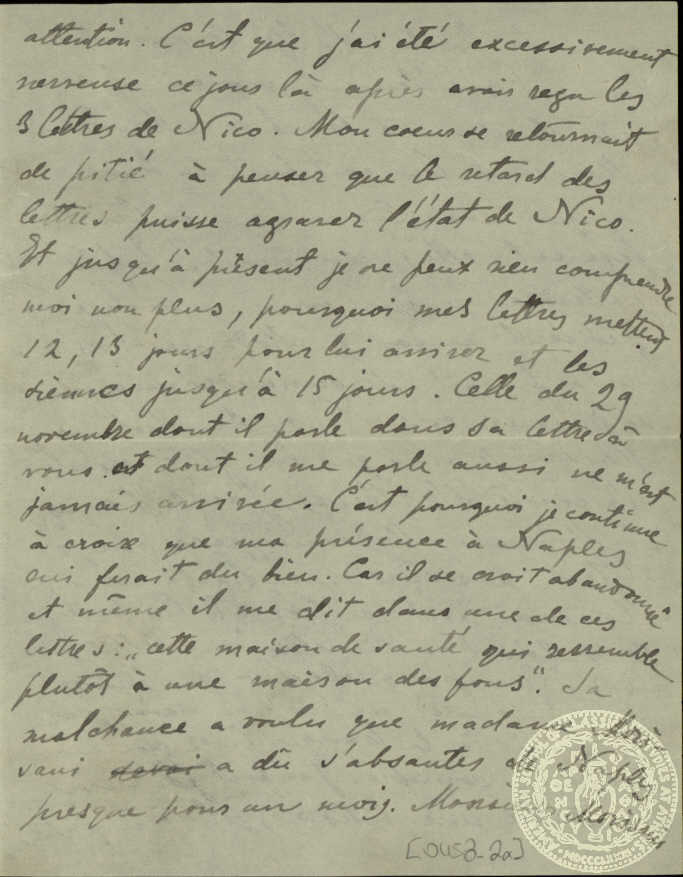 attention. C'est que j'ai été excessivement
nerveuse ce jour là après avoir reçu les
3 lettres de Nico. Mon coeur se retournait
de pitié à penser que le retard des
lettres puisse agraver l'état de Nico.
Et jusqu'à présent je ne peux rien comprendre
moi non plus, pourquoi mes lettres mettent
12, 13 jours pour lui arriver et les
siennes jusqu'à 15 jours. Celle du 29
novembre dont il parle dans sa lettre à
vous et dont il me parle aussi ne m'est
jamais arrivée. C'est pourquoi je continue
à croire que ma présence à Naples
lui ferait du bien. Car il se croit abandonné
et même il me dit dans une de ces
lettres: „cette maison de santé qui ressemble
plutôt à une maison des fous". Sa
malchance a voulu que madame
a dû s'absenter de Naples
presque pour un mois.
[OUS2-2a]